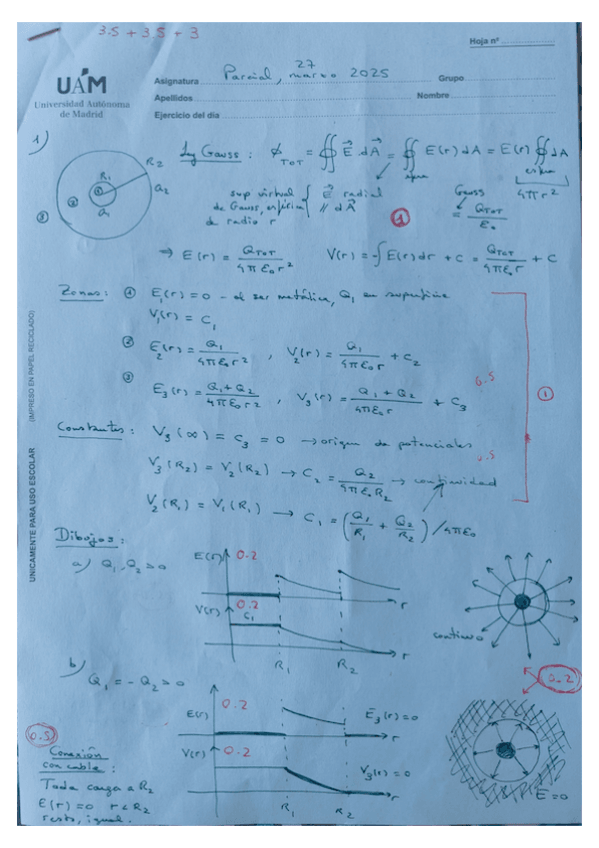 3.5 + 3.5 + 3
Hoja nº
UAM
Universidad Autónoma
de Madrid
Asignatura Parcial, 27 marzo 2025 Grupo
Apellidos Nombre
Ejercicio del día
1)
R₁ R₂
Q₁ Q₂
② ③
Ley Gauss : ϕ_TOT = ∯ E⃗ dA⃗ = ∯ E(r) dA = E(r) ∯ dA
4πr²
sup virtual de Gauss, esférica de radio r { E⃗ radial // dA⃗
① Gauss = Q_TOT / ε₀
⇒ E(r) = Q_TOT / 4πε₀r² V(r) = -∫ E(r) dr + C = Q_TOT / 4πε₀r + C
Zonas : ① E₁(r) = 0 - al ser metálica, Q₁ en superficie
V₁(r) = C₁
② E₂(r) = Q₁ / 4πε₀r² , V₂(r) = Q₁ / 4πε₀r + C₂
③ E₃(r) = Q₁+Q₂ / 4πε₀r² , V₃(r) = Q₁+Q₂ / 4πε₀r + C₃
0.5
①
Constantes : V₃(∞) = C₃ = 0 → origen de potenciales
0.5
V₃(R₂) = V₂(R₂) → C₂ = Q₂ / 4πε₀R₂ → continuidad
V₂(R₁) = V₁(R₁) → C₁ = (Q₁/R₁ + Q₂/R₂) / 4πε₀
Dibujos :
a) Q₁, Q₂ > 0
E(r) 0.2
r
V(r) 0.2
C₁
r
R₁ R₂
continuo
0.2
b)
Q₁ = -Q₂ > 0
E(r) 0.2
E₃(r) = 0
r
V(r) 0.2
V₃(r) = 0
r
R₁ R₂
E = 0
0.5
Conexión
con cable :
Toda carga a R₂
E(r) = 0 r < R₂
resto, igual.
UNICAMENTE PARA USO ESCOLAR
(IMPRESO EN PAPEL RECICLADO)